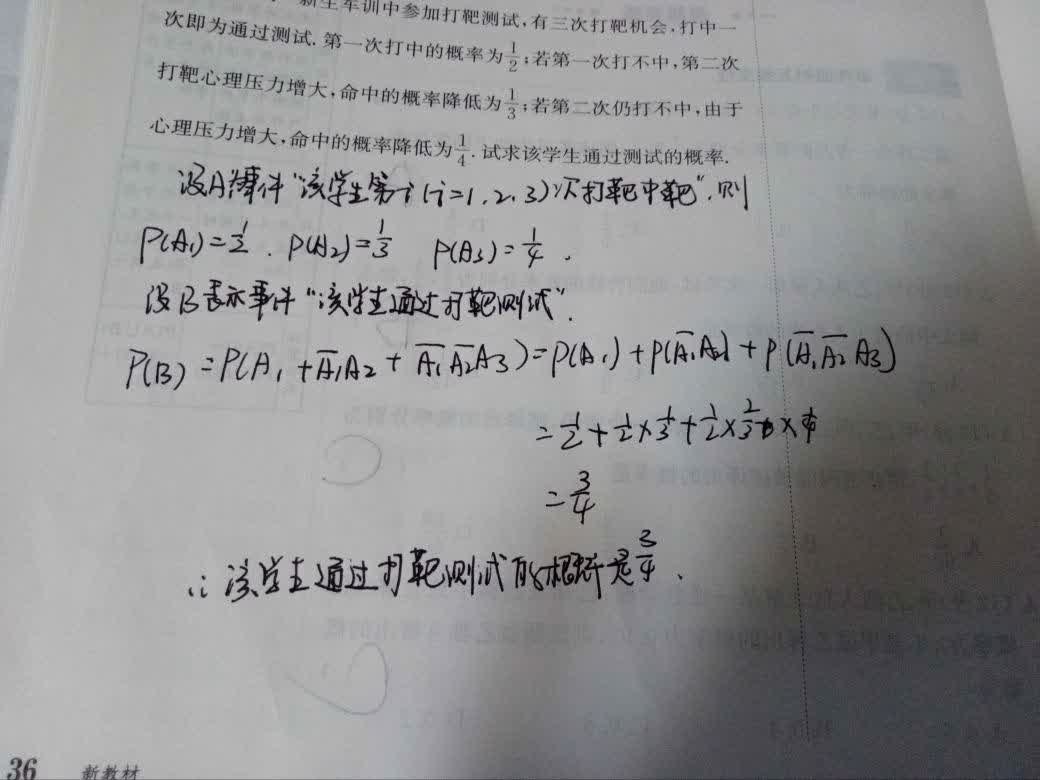 新生军训中参加打靶测试,有三次打靶机会,打中一
次即为通过测试.第一次打中的概率为1/2;若第一次打不中,第二次
打靶心理压力增大,命中的概率降低为1/3;若第二次仍打不中,由于
心理压力增大,命中的概率降低为1/4.试求该学生通过测试的概率.
设Ai为事件“该学生第i(i=1,2,3)次打靶中靶”,则
P(A₁)=1/2. P(A₂)=1/3 P(A₃)=1/4.
设B表示事件“该学生通过打靶测试”.
P(B)=P(A₁+A̅₁A₂+A̅₁A̅₂A₃)=P(A₁)+P(A̅₁A₂)+P(A̅₁A̅₂A₃)
=1/2+1/2×1/3+1/2×2/3×1/4
=3/4
∴该学生通过打靶测试的概率是3/4.
36 新教材